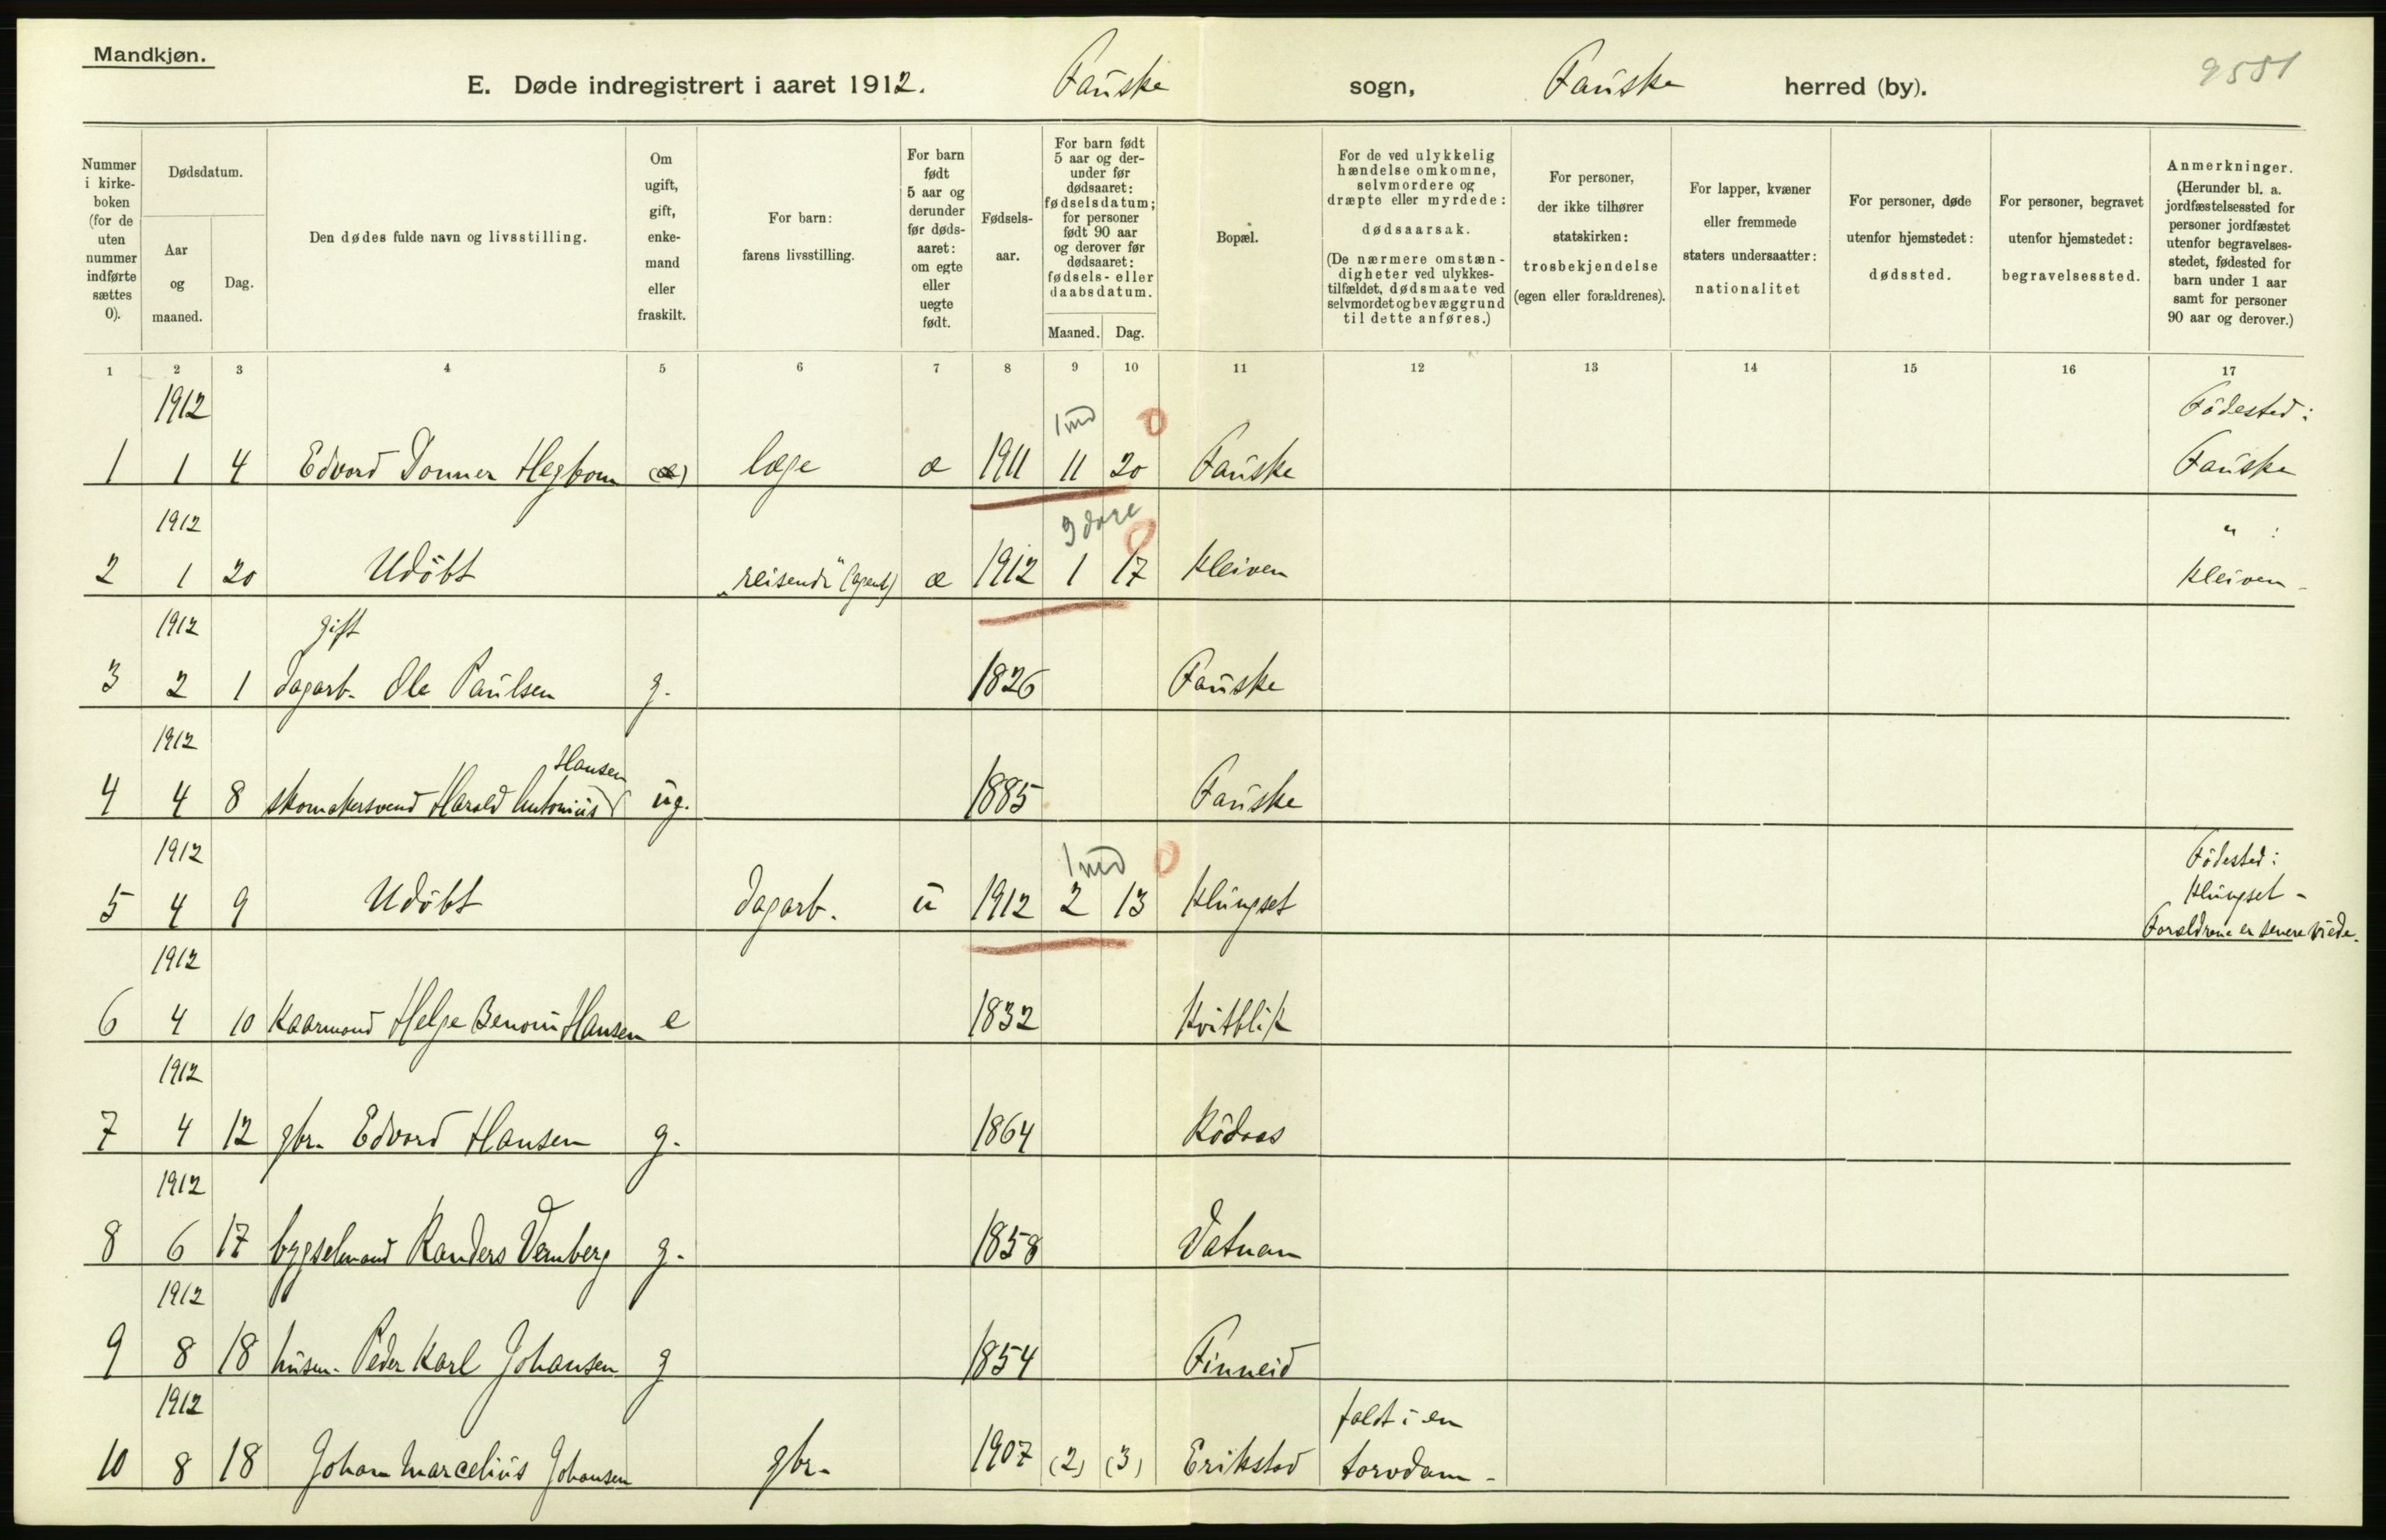 Mandkjøn.
E. Døde indregistrert i aaret 1912. Fauske sogn, Fauske herred (by). 9551
Nummer i kirkeboken (for de uten nummer indførte sættes 0).
Dødsdatum.
Aar og maaned.
Dag.
Den dødes fulde navn og livsstilling.
Om ugift, gift, enkemand eller fraskilt.
For barn: farens livsstilling.
For barn født 5 aar og derunder før dødsaaret: om egte eller uegte født.
Fødselsaar.
For barn født 5 aar og derunder før dødsaaret: fødselsdatum; for personer født 90 aar og derover før dødsaaret: fødsels- eller daabsdatum.
Maaned. Dag.
Bopæl.
For de ved ulykkelig hændelse omkomne, selvmordere og dræpte eller myrdede: dødsaarsak. (De nærmere omstændigheter ved ulykkestilfældet, dødsmaate ved selvmordet og bevæggrund til dette anføres.)
For personer, der ikke tilhører statskirken: trosbekjendelse (egen eller forældrenes).
For lapper, kvæner eller fremmede staters undersaatter: nationalitet
For personer, døde utenfor hjemstedet: dødssted.
For personer, begravet utenfor hjemstedet: begravelsessted.
Anmerkninger. (Herunder bl. a. jordfæstelsessted for personer jordfæstet utenfor begravelsesstedet, fødested for barn under 1 aar samt for personer 90 aar og derover.)
1 2 3 4 5 6 7 8 9 10 11 12 13 14 15 16 17
1912 1 md 0 Födested:
1 1 4 Edvard Donner Hegbom (æ) læge æ 1911 11 20 Fauske Fauske
1912 3 dage 0 " :
2 1 20 Udöbt „reisende" (agent) æ 1912 1 17 Kleiven Kleiven
1912 gift
3 2 1 dagarb. Ole Paulsen g. 1826 Fauske
1912 Hansen
4 4 8 skomakersvend Harald Antonius ug. 1885 Fauske
1912 1 md 0 Födested:
5 4 9 Udöbt dagarb. u 1912 2 13 Klungset Klungset -
Forældrene er senere viede.
1912
6 4 10 Kaarmand Helge Benoni Hansen e 1832 Kvitblik
1912
7 4 12 gbr. Edvard Hansen g. 1864 Rödaas
1912
8 6 17 bygselmand Randers Vernberg g. 1858 Vatnan
1912
9 8 18 husm. Peder Karl Johansen g 1854 Finneid
1912 faldt i en
10 8 18 Johan Marcelius Johansen gbr. 1907 (2) (3) Erikstad torvdam -